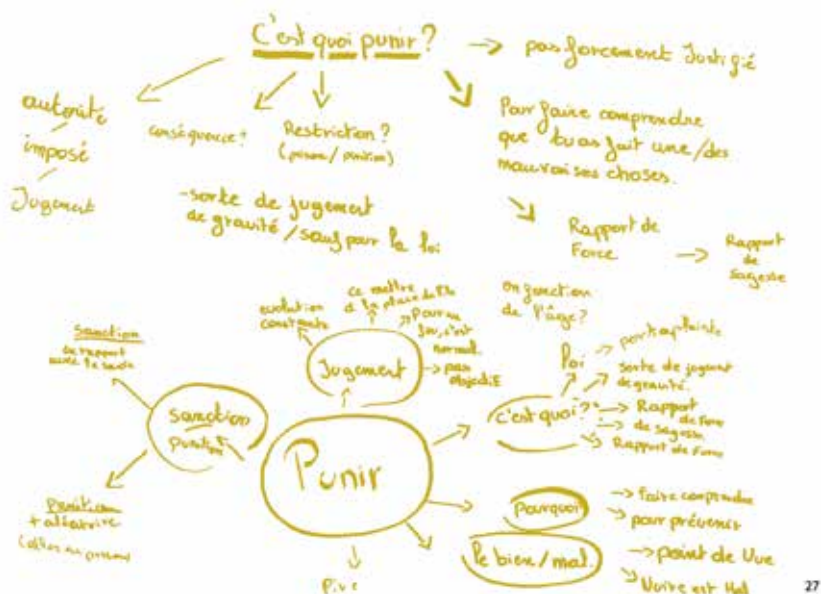 C'est quoi punir ?
pas forcement Justifié
autorité
imposé
Jugement
conséquence ?
Restriction ?
(prison / punition)
Pour faire comprendre
que tu as fait une / des
mauvaises choses.
- sorte de jugement
de gravité / sauf pour la loi
Rapport de
Force
Rapport
de
sagesse
en fonction
de l'âge ?
evolution
constante
ce mettre
à la place de
Pour un
c'est
normal.
pas
objectif
Jugement
sanction
en rapport
avec
sanction
punition
Punition
+ aléatoire
Punir
c'est quoi ?
loi
porte plainte
sorte de jugement
de gravité.
Rapport
de Force
de sagesse
Rapport de Force
Pourquoi
faire comprendre
pour prévenir
le bien / mal.
point de Vue
Nuire est Mal
Pire
27